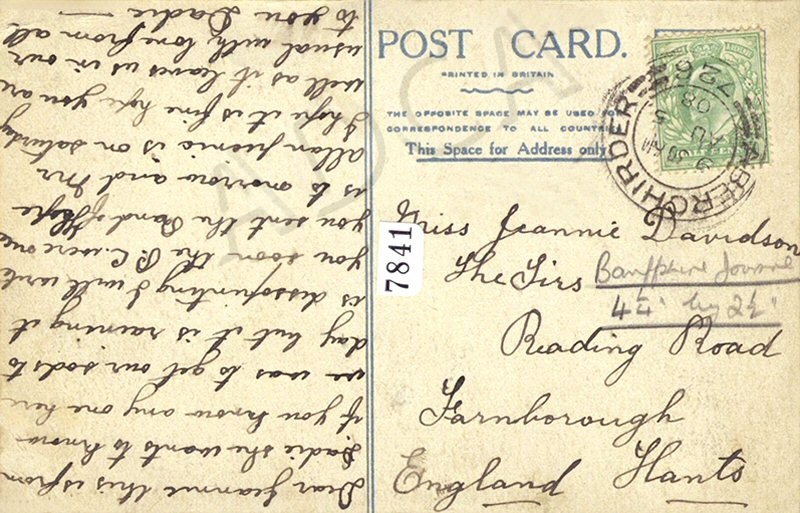 Dear Jeannie this is from
Dadie she wants to know
if you know any one here
we was to get our sods to
day but it is raining it
is dissopinting I will write
you soon the P.C. were one
you sent the Band of Hope
is to morrow and Mr
allan picnic is on saturday
I hope it is fine hope you are
well as it leaves us in our
usual with love from all
to you Dadie —
POST CARD.
PRINTED IN BRITAIN
THE OPPOSITE SPACE MAY BE USED FOR
CORRESPONDENCE TO ALL COUNTRIES
This Space for Address only
ABERCHIRDER
AU 5
08
Miss Jeannie Davidson
The Firs
Banffshire Journal
Reading Road
Farnborough
England Hants
7841